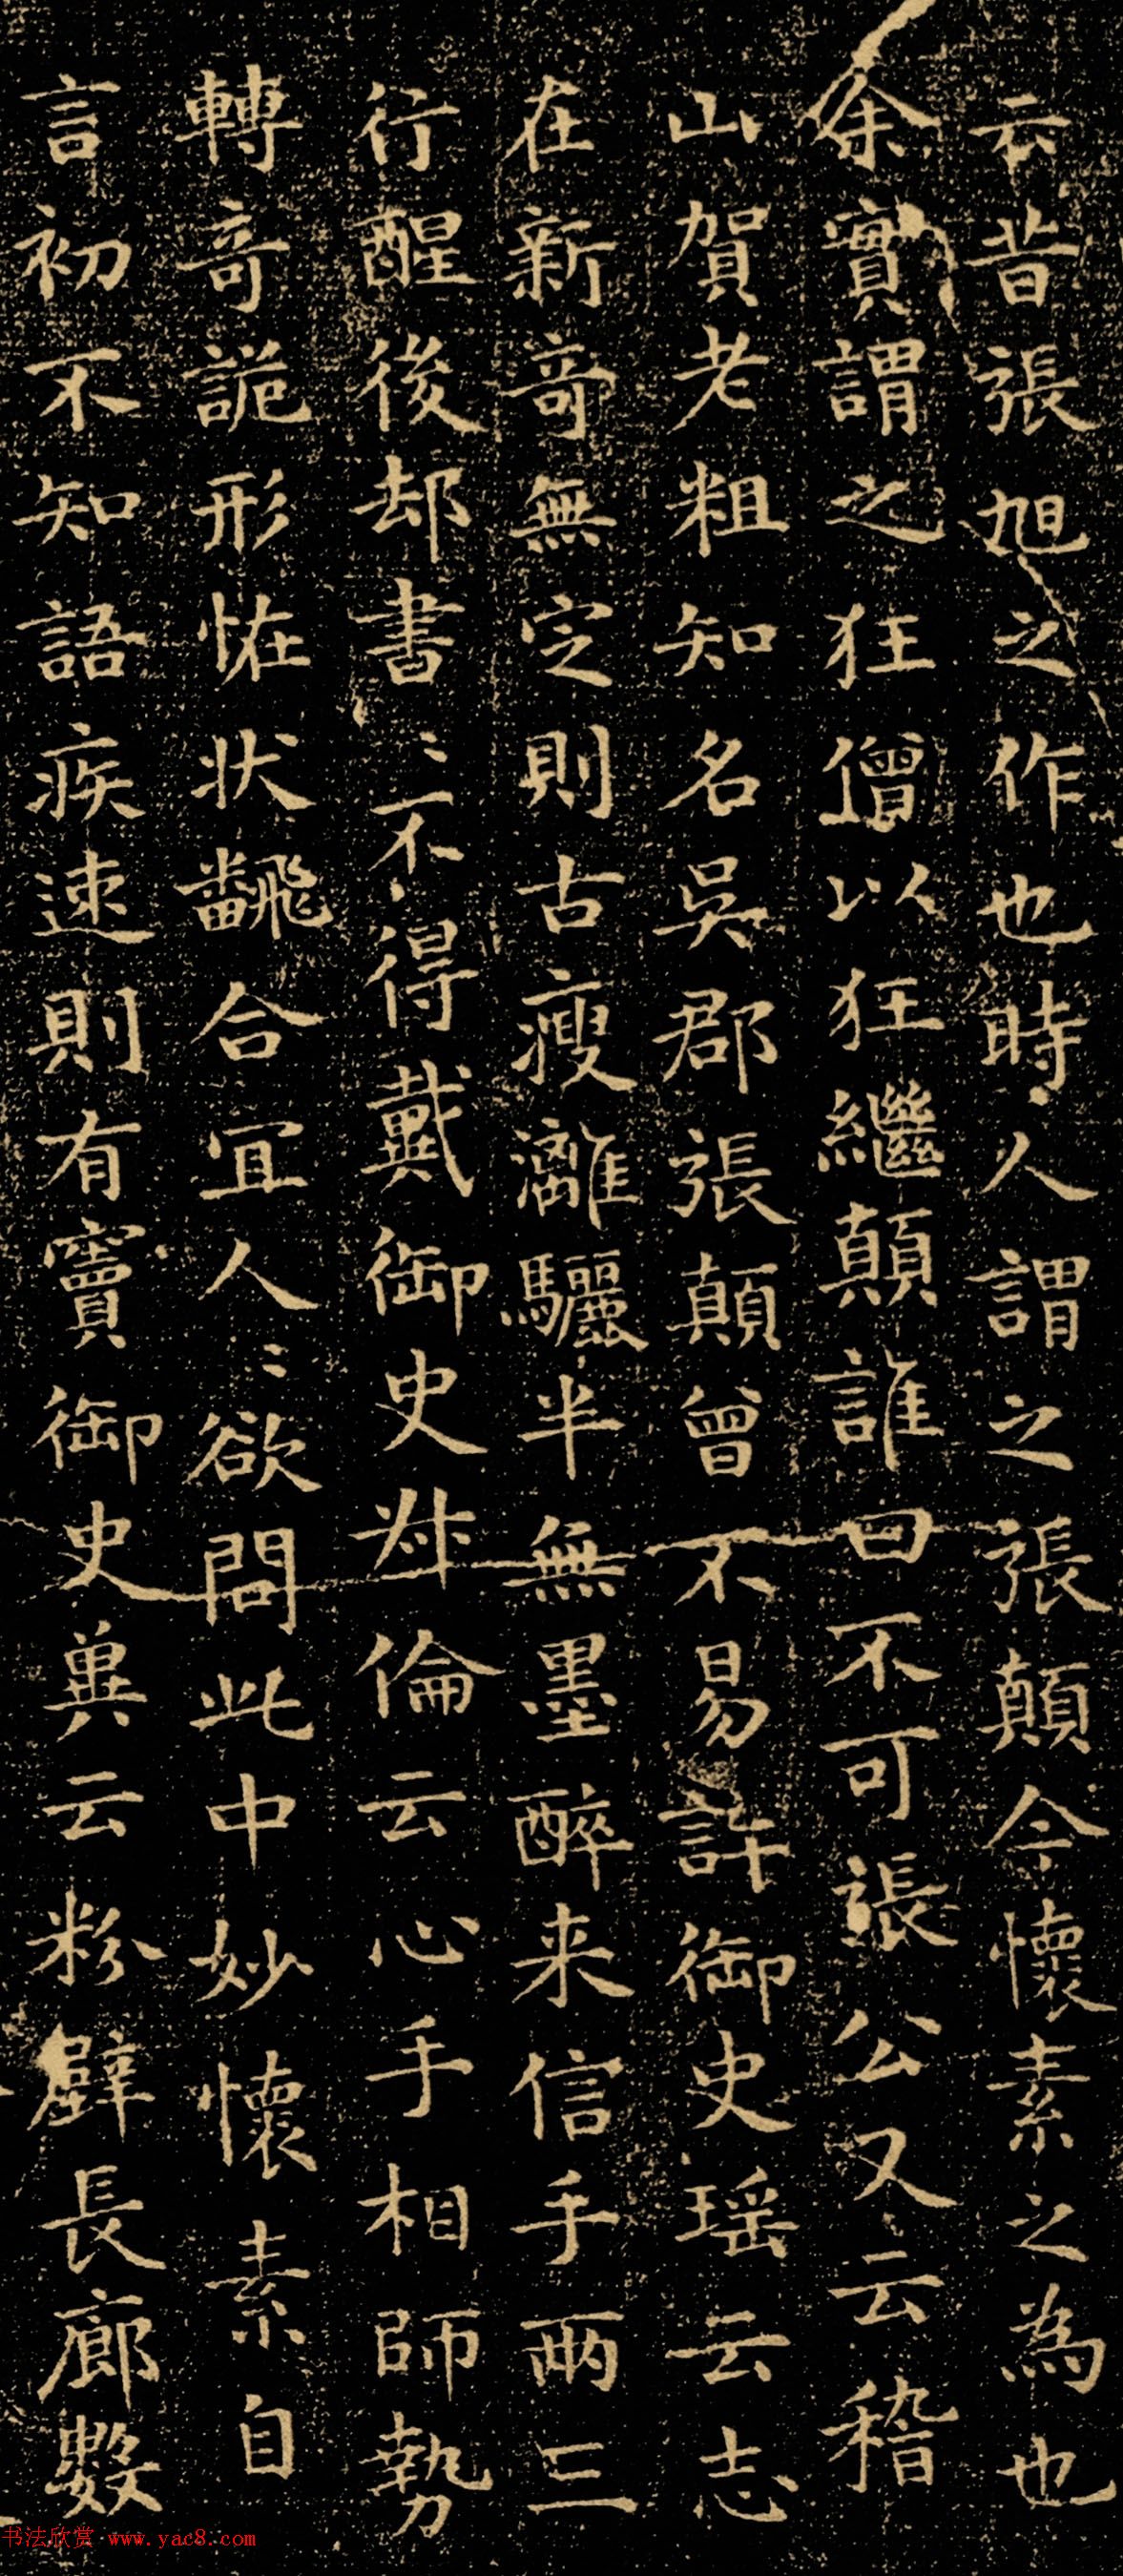 云昔張旭之作也時人謂之張顛今懷素之為也
余實謂之狂僧以狂繼顛誰曰不可張公又云稽
山賀老粗知名吳郡張顛曾不易許御史瑶云志
在新奇無定則古瘦灕驪半無墨醉来信手兩三
行醒後却書〻不得戴御史叔倫云心手相師勢
轉奇詭形怪状飜合宜人〻欲問此中妙懷素自
言初不知語疾速則有竇御史兾云粉壁長廊數
书法欣赏 www.yac8.com